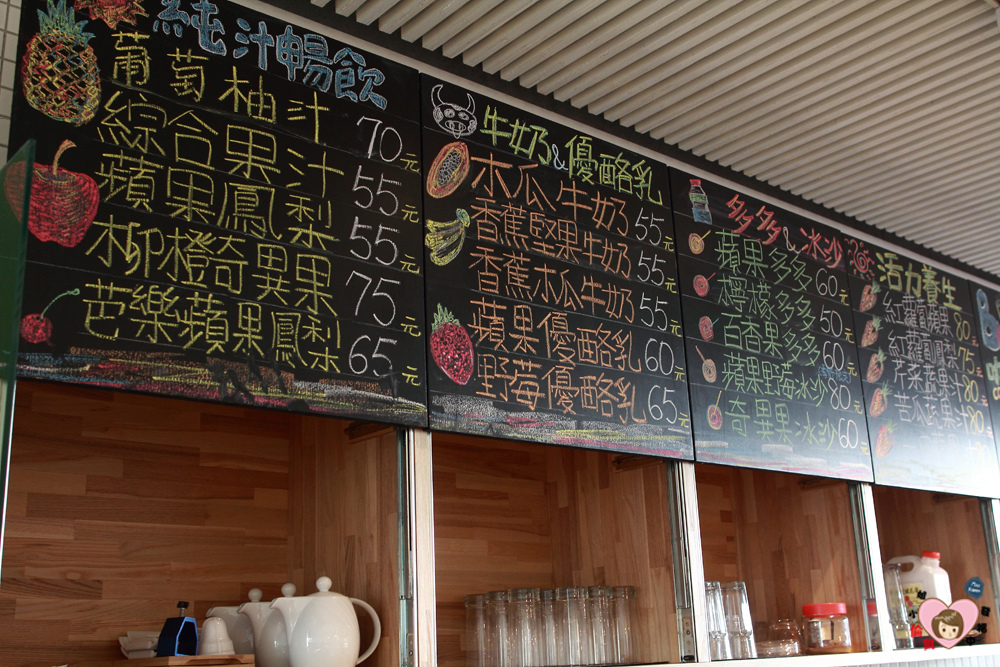 純汁暢飲
葡萄柚汁 70元
綜合果汁 55元
蘋果鳳梨 55元
柳橙奇異果 75元
芭樂蘋果鳳梨 65元
牛奶&優酪乳
木瓜牛奶 55元
香蕉堅果牛奶 55元
香蕉木瓜牛奶 55元
蘋果優酪乳 60元
野莓優酪乳 65元
多多&冰沙
蘋果多多 60元
檸檬多多 50元
百香果多多 60元
蘋果野莓冰沙 80元
奇異果冰沙 60元
活力養生
紅蘿蔔蘋果 80元
紅蘿蔔鳳梨 75元
芹菜蔬果汁 80元
苦瓜蔬果汁 80元